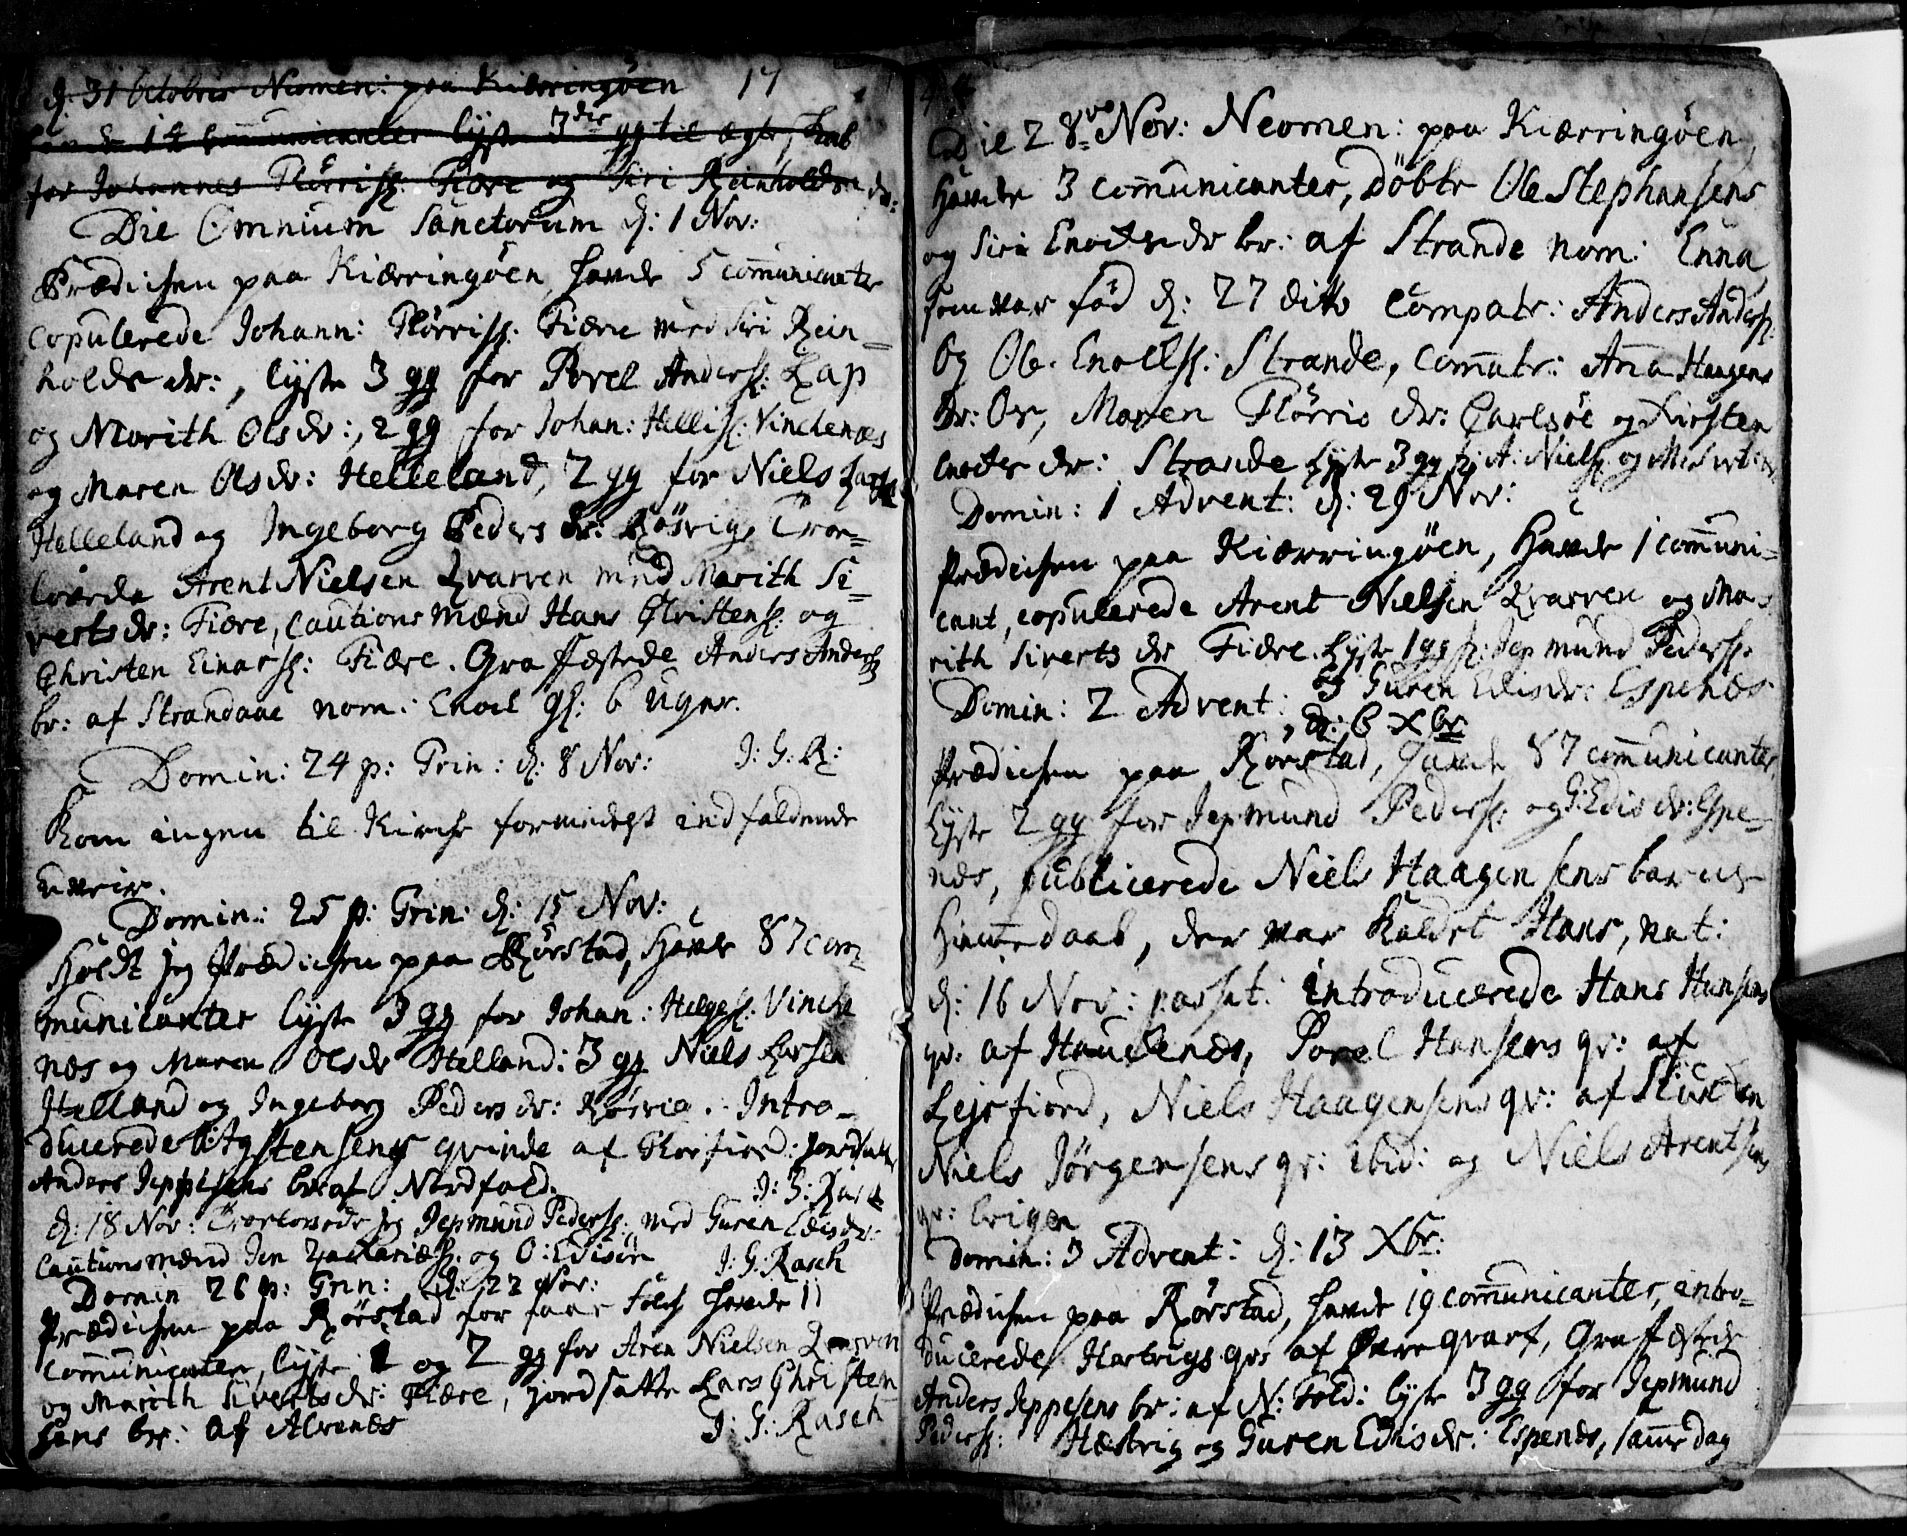 d: 31 Octobris Neomen: paa Kiærringöen 17
14 communicanter lyste 3die gg til ægteskab
for Johannes Tlörriss: Fiære og Siri Reinholds dr:
Die Omnium Sanctorum d: 1 Nov:
Prædichen paa Kiærringöen, hafde 5 communicanter
copulerede Johann: Tlörriss: Fiære med Siri Rein=
holds dr:, lyste 3 gg for Povel Anderss: Lap
og Marith Olsdr:, 2 gg for Johan: Helliss: Vinckenæs
og Maren Olsdr: Helleland, 2 gg for Niels
Helleland og Ingeborg Peders dr: Rösvig, Troe=
lovede Arent Nielsen Qvarven med Marith Si=
vertsdr: Fiære, Cautions Mænd Hans Christenss: og
Christen Einarss: Fiære. Graffæstede Anders Anderss
br: af Strandaae nom: Enoch gl: 6 Uger.
Domin: 24 p: Trin: d: 8 Nov: J: G: R:
Kom ingen til Kirche formedelst indfaldende
Uveir.
Domin: 25 p: Trin: d: 15 Nov:
Holdt jeg Prædichen paa Rörstad, hafde 87 com=
municanter lyste 3 gg for Johan: Helgess: Vincke
næs og Maren Olsdr Helland: 3 gg Niels Larsen
Helland og Ingeborg Pedersdr: Rösvig. Intro=
ducerede qvinde af
Anders Jeppesens br: af Nordfold. J: G: Rasch
d: 18 Nov: Troelovede jeg Jepmund Pederss: med Guren Edisdr:
Cautionsmænd Jen Zachariæss: og O: Edisön J: G: Rasch
Domin 26 p: Trin: d: 22 Nov:
Prædichen paa Rörstad for faae Folch hafde 11
communicanter, lyste 1 og 2 gg for Aren Nielsen Qvarven
og Marith Sivertsdr: Fiære, jordsatte Lars Christen
sens br: af Alvenæs J: G: Rasch
Die 28vo Nov: Neomen: paa Kiærringöen,
Hafde 3 communicanter, Döbte Ole Stephansens
og Siri Enochs dr br: af Strande nom: Enna,
som var föd d: 27 dito Compatr: Anders Anderss:
Og Ole Enochss: Strande, Commatr: Anna Haagens
Dr: Maren Tlörris dr: Carlsöe og Kirsten
Enochs dr: Strande Lyste 3 gg f: A: Nielss: og M: Sivertsdr
Domin: 1 Advent: d: 29 Nov:
Prædichen paa Kiærringöen, Hafde 1 communi=
cant, copulerede Arent Nielsen Qvarven og Ma=
rith Siverts dr Fiære. Lyste 1 gg f: Jepmund Pederss:
og Guren Edisdr: Espenæs.
Domin: 2 Advent: d: 6 Xbr
Prædichen paa Rörstad, hafde 87 communicanter
Lyste 2 gg for Jepmund Pederss: og G: Edisdr: Espe=
næs, publicerede Niels Haagensens barns
Hiemmedaab, der var kaldet Hans, nat:
d: 16 Nov: passat: Introducerede Hans Hansens
qv: af Hauchenæs, Povel Hansens qv: af
Lejrfiord, Niels Haagensens qv: af
Niels Jörgensens qv: ibid: og Niels Arentsens
qv:
Domin: 3 Advent: d: 13 Xbr:
Prædichen paa Rörstad, hafde 19 communicanter, intro=
ducerede Hartvigs qv: af Øvre qvarf, Graffæstede
Anders Jeppesens br: af N: Fold: lyste 3 gg for Jepmund
Pederss: Hæstvig og Guren Edisdr: Espenæs, samme dag